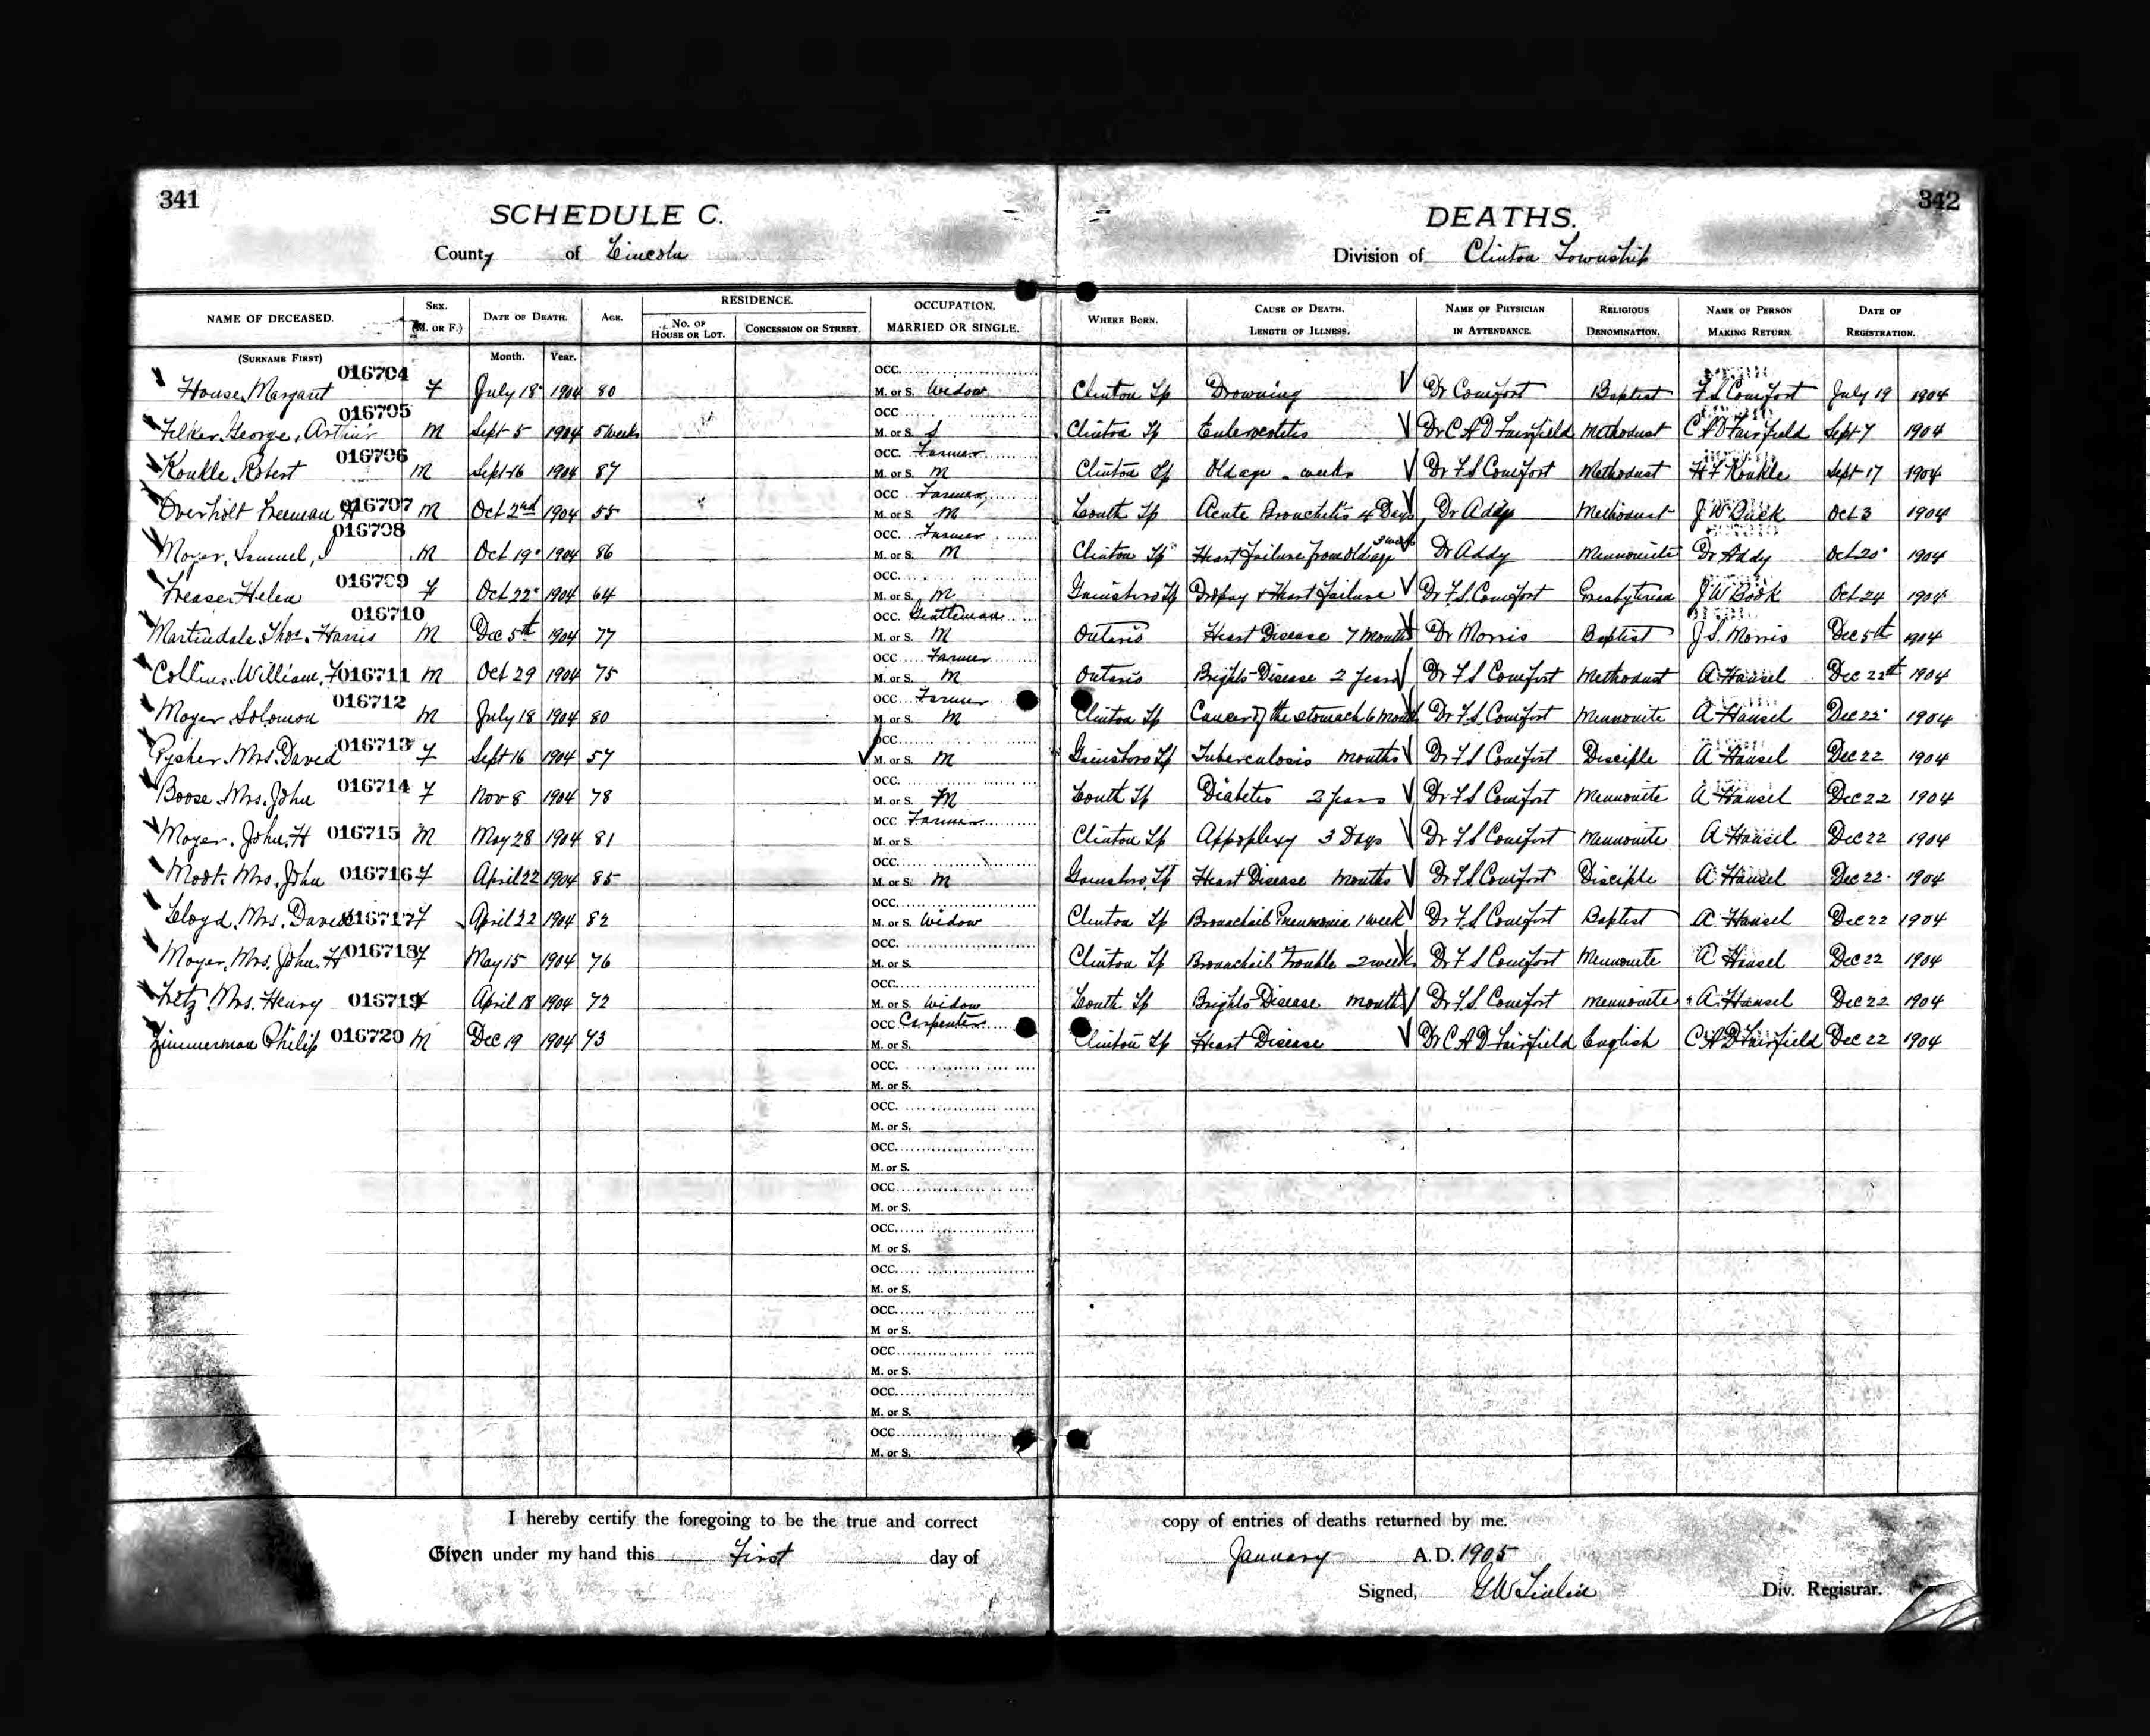 341
342
SCHEDULE C.
DEATHS.
County of Lincoln
Division of Clinton Township
NAME OF DECEASED. SEX. (M. OR F.) DATE OF DEATH. AGE. RESIDENCE. No. OF HOUSE OR LOT. CONCESSION OR STREET. OCCUPATION. MARRIED OR SINGLE. WHERE BORN. CAUSE OF DEATH. LENGTH OF ILLNESS. NAME OF PHYSICIAN IN ATTENDANCE. RELIGIOUS DENOMINATION. NAME OF PERSON MAKING RETURN. DATE OF REGISTRATION.
(SURNAME FIRST) Month. Year.
016704 OCC.
House, Margaret F July 18 1904 80 M. or S. Widow Clinton Tp Drowning Dr Comfort Baptist F S Comfort July 19 1904
016705 OCC
George, Arthur M Sept 5 1904 5 weeks M. or S. S Clinton Tp Dr C A D Fairfield Methodist C A D Fairfield Sept 7 1904
016706 OCC. Farmer
Konkle, Robert M Sept 16 1904 87 M. or S. M Clinton Tp Old age - weeks Dr F S Comfort Methodist H F Konkle Sept 17 1904
016707 OCC Farmer
Overholt Freeman H M Oct 2nd 1904 55 M. or S. M Louth Tp Acute Bronchitis 4 Days Dr Addy Methodist J W Oct 3 1904
016708 OCC. Farmer
Moyer, Samuel, M Oct 19 1904 86 M. or S. M Clinton Tp Heart Failure from old age 3 weeks Dr Addy Mennonite Dr Addy Oct 20 1904
016709 OCC.
Helen F Oct 22 1904 64 M. or S. M Gainsboro Tp Dropsy & Heart Failure Dr F S. Comfort Presbyterian J W Book Oct 24 1904
016710 OCC. Gentleman
Martindale Thos. Harris M Dec 5th 1904 77 M. or S. M Ontario Heart Disease 7 months Dr Morris Baptist J S. Morris Dec 5th 1904
016711 OCC Farmer
Collins. William, M Oct 29 1904 75 M. or S. M Ontario Brights Disease 2 Years Dr F S Comfort Methodist A Hansel Dec 22 1904
016712 OCC Farmer
Moyer Solomon M July 18 1904 80 M. or S. M Clinton Tp Cancer of the stomach 6 month Dr F S. Comfort Mennonite A Hansel Dec 22 1904
016713 OCC
Pysher Mrs. David F Sept 16 1904 57 M. or S. M Gainsboro Tp Tuberculosis months Dr F S Comfort Disciple A Hansel Dec 22 1904
016714 OCC.
Boose. Mrs. John F Nov 8 1904 78 M. or S. M Louth Tp Diabetes 2 Years Dr. F S Comfort Mennonite A Hansel Dec 22 1904
016715 OCC Farmer
Moyer. John. H M May 28 1904 81 M. or S. Clinton Tp Appoplexy 3 Days Dr F S Comfort Mennonite A Hansel Dec 22 1904
016716 OCC.
Mrs. John F April 22 1904 85 M. or S. M Gainsboro. Tp Heart Disease months Dr F S Comfort Disciple A Hansel Dec 22 1904
016717 OCC.
Lloyd. Mrs. David F April 22 1904 82 M. or S. Widow Clinton Tp Pneumonia 1 week Dr F S. Comfort Baptist A. Hansel Dec 22 1904
016718 OCC.
Moyer, Mrs. John. H F May 15 1904 76 M. or S. Clinton Tp Trouble 2 weeks Dr F S Comfort Mennonite A Hansel Dec 22 1904
016719 OCC.
Fretz. Mrs. Henry F April 18 1904 72 M. or S. Widow Louth Tp Brights Disease months Dr F S. Comfort Mennonite A. Hansel Dec 22 1904
016720 OCC Carpenter
Zimmerman Philip M Dec 19 1904 73 M. or S. Clinton Tp Heart Disease Dr C A D Fairfield English C A D Fairfield Dec 22 1904
OCC.
M. or S.
OCC.
M. or S.
OCC.
M. or S.
OCC
M. or S.
OCC.
M or S.
OCC.
M. or S.
OCC.
M or S.
OCC.
M. or S.
OCC.
M. or S.
OCC.
M. or S.
I hereby certify the foregoing to be the true and correct copy of entries of deaths returned by me.
Given under my hand this First day of January A.D. 1905
Signed, Div. Registrar.